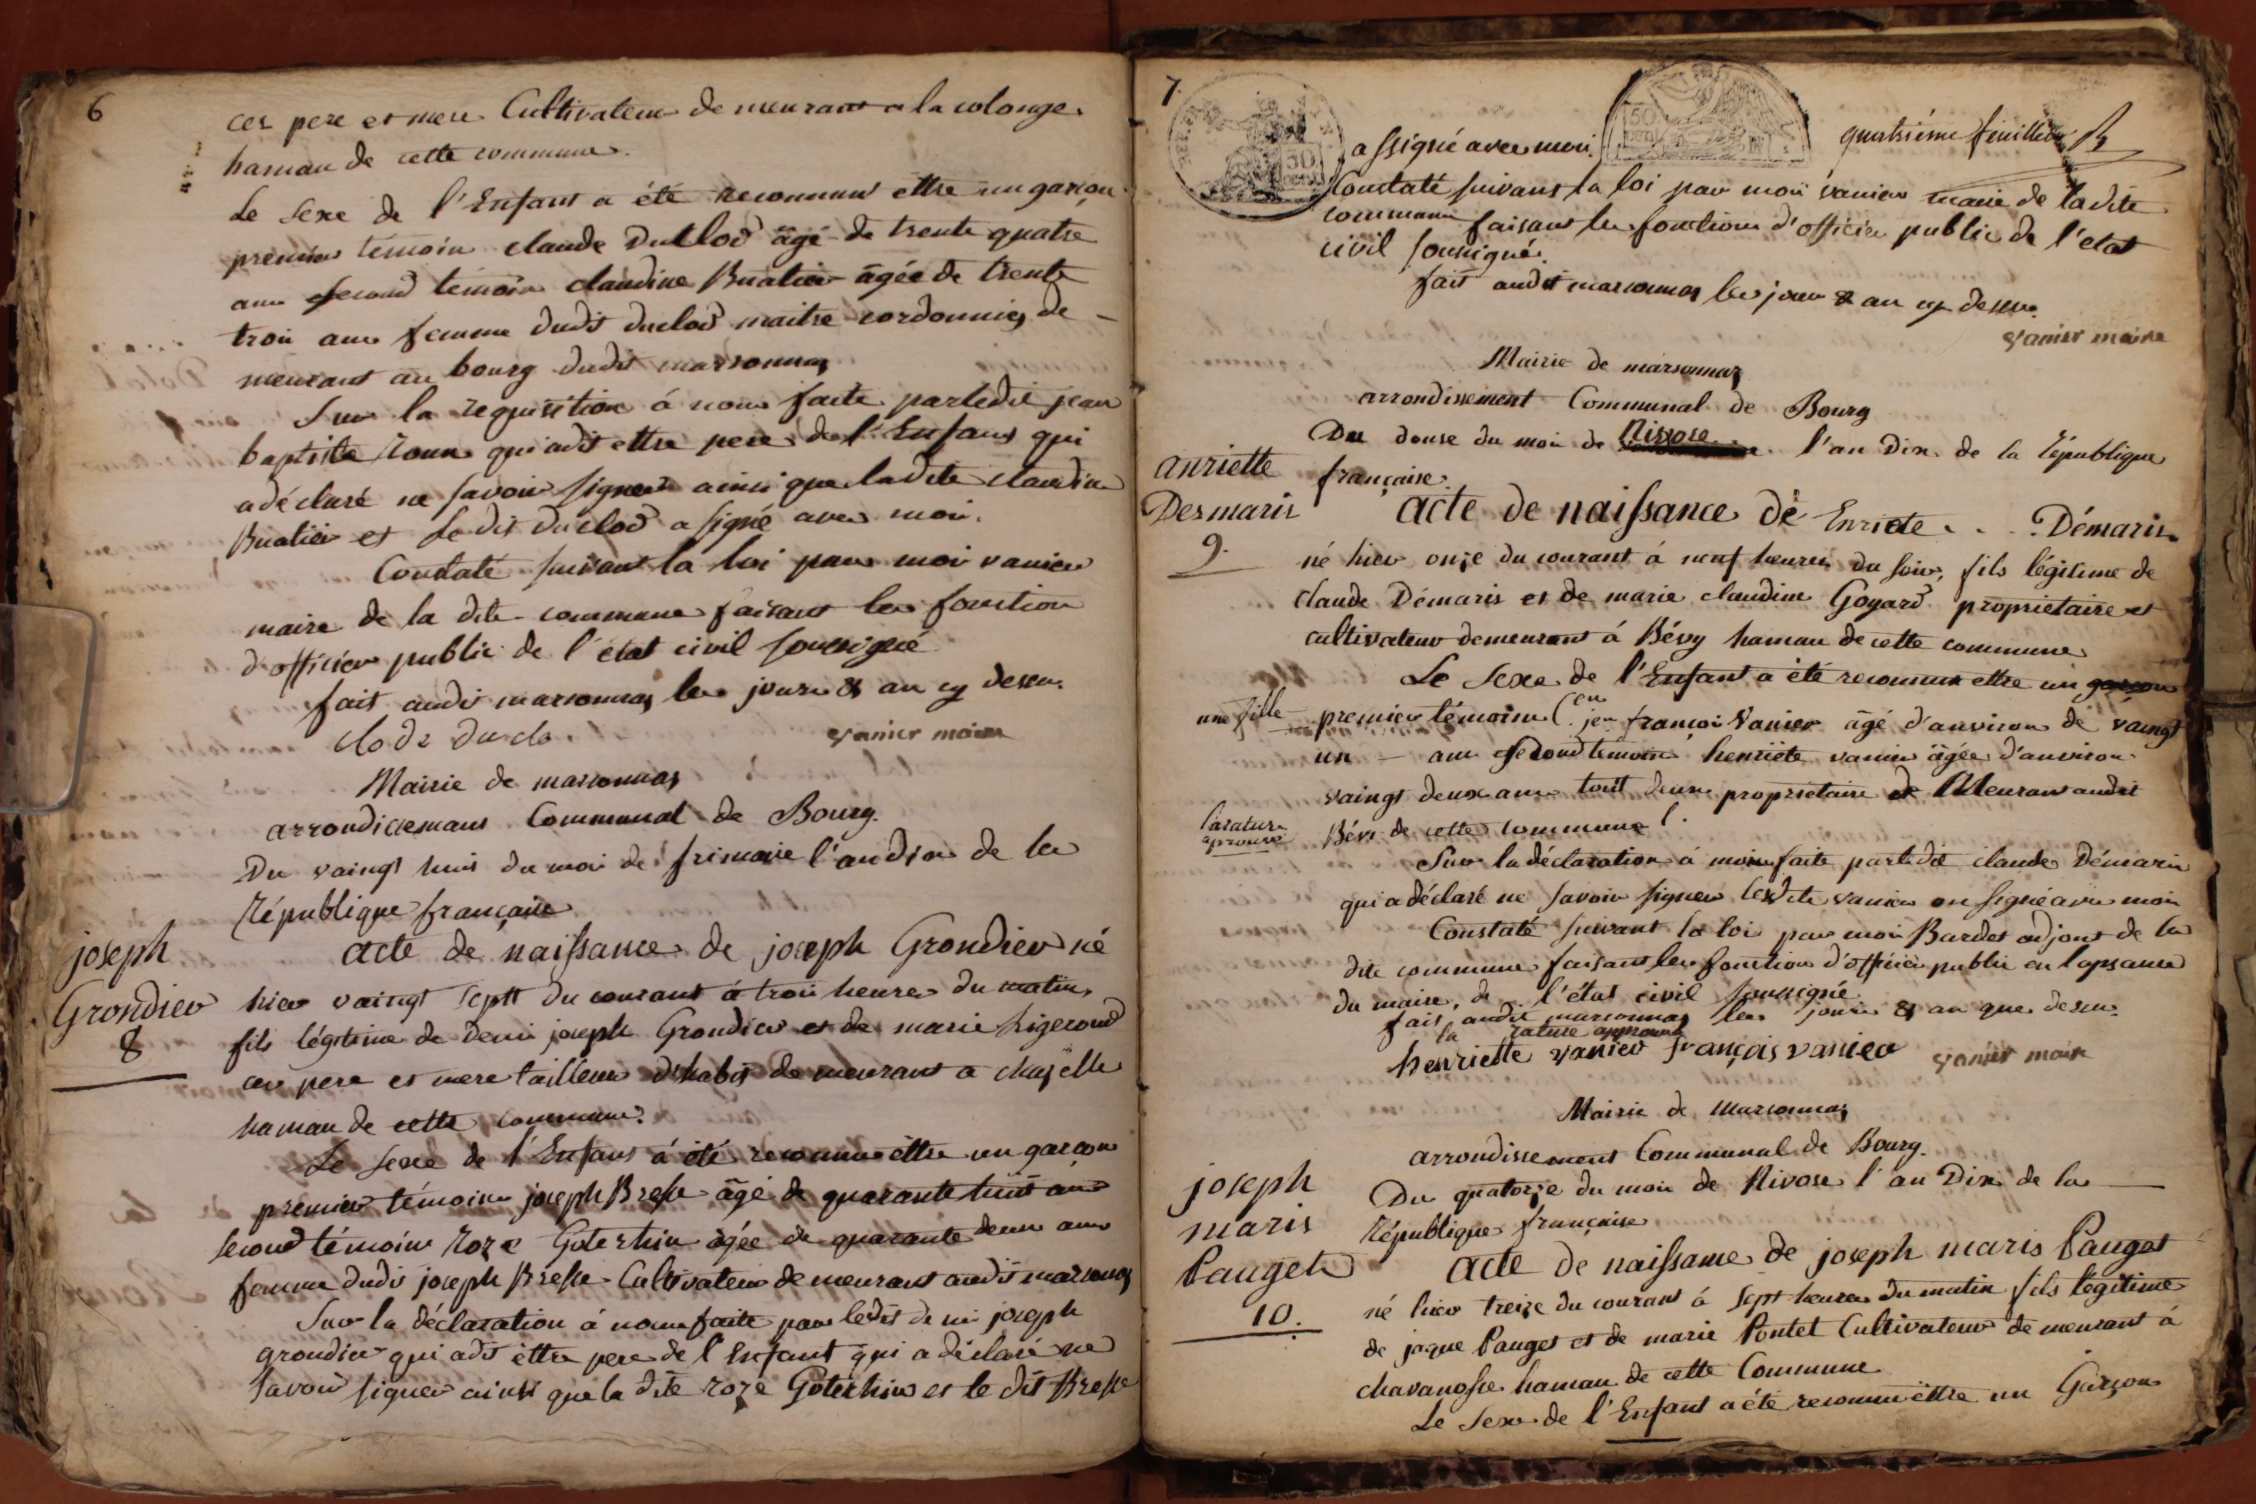 6
ces pere et mere Cultivateur demeurant a la colonge
hamau de cette commune.
Le sexe de l'Enfant a été reconnu ettre un garçon
premier témoin claude Duclod âgé de trente quatre
ans second témoin claudine Buatier âgée de trente
trois ans femme dudit duclod maitre cordonnier de
meurant au bourg dudit marsonnas
Sur la requisition à nous faite par ledit jean
baptiste qui a dit ettre pere de l'Enfant qui
a déclaré ne savoir signer ainsi que ladite claudine
Buatier et Le dit duclod a signé avec moi.
Constaté suivant la loi par moi vanier
maire de la dite commune faisant les fonction
d'officier public de l'état civil soussigné
fait audit marsonnas les jour & an cy desu.
clode duclo vanier maire
Mairie de marsonnas
arrondicemant Communal de Bourg.
Du vaingt huit du moi de frimaire l'an dix de la
République française
joseph
Grondier
8
acte de naissance de joseph Grondier né
hier vaingt septt du courant à trois heures du matin,
fils légitime de Deni joseph Grondier et de marie
ces pere et mere tailleur d'habit demeurant a chazelle
hamau de cette commune.
Le sexe de l'Enfant à été reconnu ettre un garcon
premier témoin joseph Bresse âgé de quarante huit ans
second témoin roze Goterhin âgée de quarante deux ans
femme dudit joseph Bresse Cultivateur demeurant audit marsonnas
Sur la déclaration à nous faite par ledit deni joseph
grondier qui a dit ettre pere de l'Enfant qui a déclaré ne
savoir signer ainsi que la dite roze Goterhin et le dit Bresse
7
quatriéme feuillet
a ssigné avec moi.
Constaté suivant la loi par moi vanier maire de la dite
commune faisant les fonction d'officier public de l'etat
civil soussigné.
fait audit marsonnas les jour & an cy desu.
vanier maire
Mairie de marsonnas
arrondissement Communal de Bourg
Du douse du moi de Nivose l'an Dix de la République
française.
anriette
Desmaris
9.
acte de naissance de Enriete . . . Démaris
né hier onze du courant à neuf heures du soir, fils légitime de
claude Démaris et de marie claudine Goyard propriétaire et
cultivateur demeurant à Bévy hamau de cette commune
Le Sexe de l'Enfant a été reconnu ettre un garçon
une fille premier témoin françois Vanier âgé d'anviron de vaingt
un — ans second témoin henriëte vanier âgée d'anviron
vaingt deux ans tout deux propriétaire de Meurant audit
Bévi de cette commune
larature
aprouvé
Sur la déclaration à moi faite par ledit claude Démaris
qui a déclaré ne savoir signer lesdite vanier on signé avec moi
Constaté suivant la loi par moi Bardet adjont de la
dite commune faisant les fonction d'officier public en lapsance
du maire, de l'état civil soussigné
fait audit marsonnas les jour & an que desu.
la rature approuvé
henriette vanier françois vanier vanier maire
Mairie de Marsonnas
arrondissement Communal de Bourg.
Du quatorze du moi de Nivose l'an Dix de la
République française
joseph
maris
Pauget
10.
acte de naissance de joseph maris Pauget
né hier treize du courant à sept heures du matin fils légitime
de jaque Pauget et de marie Pontet Cultivateur demeurant à
chavanosse hamau de cette Commune
Le Sexe de l'Enfant a été reconnu ettre un Garçon